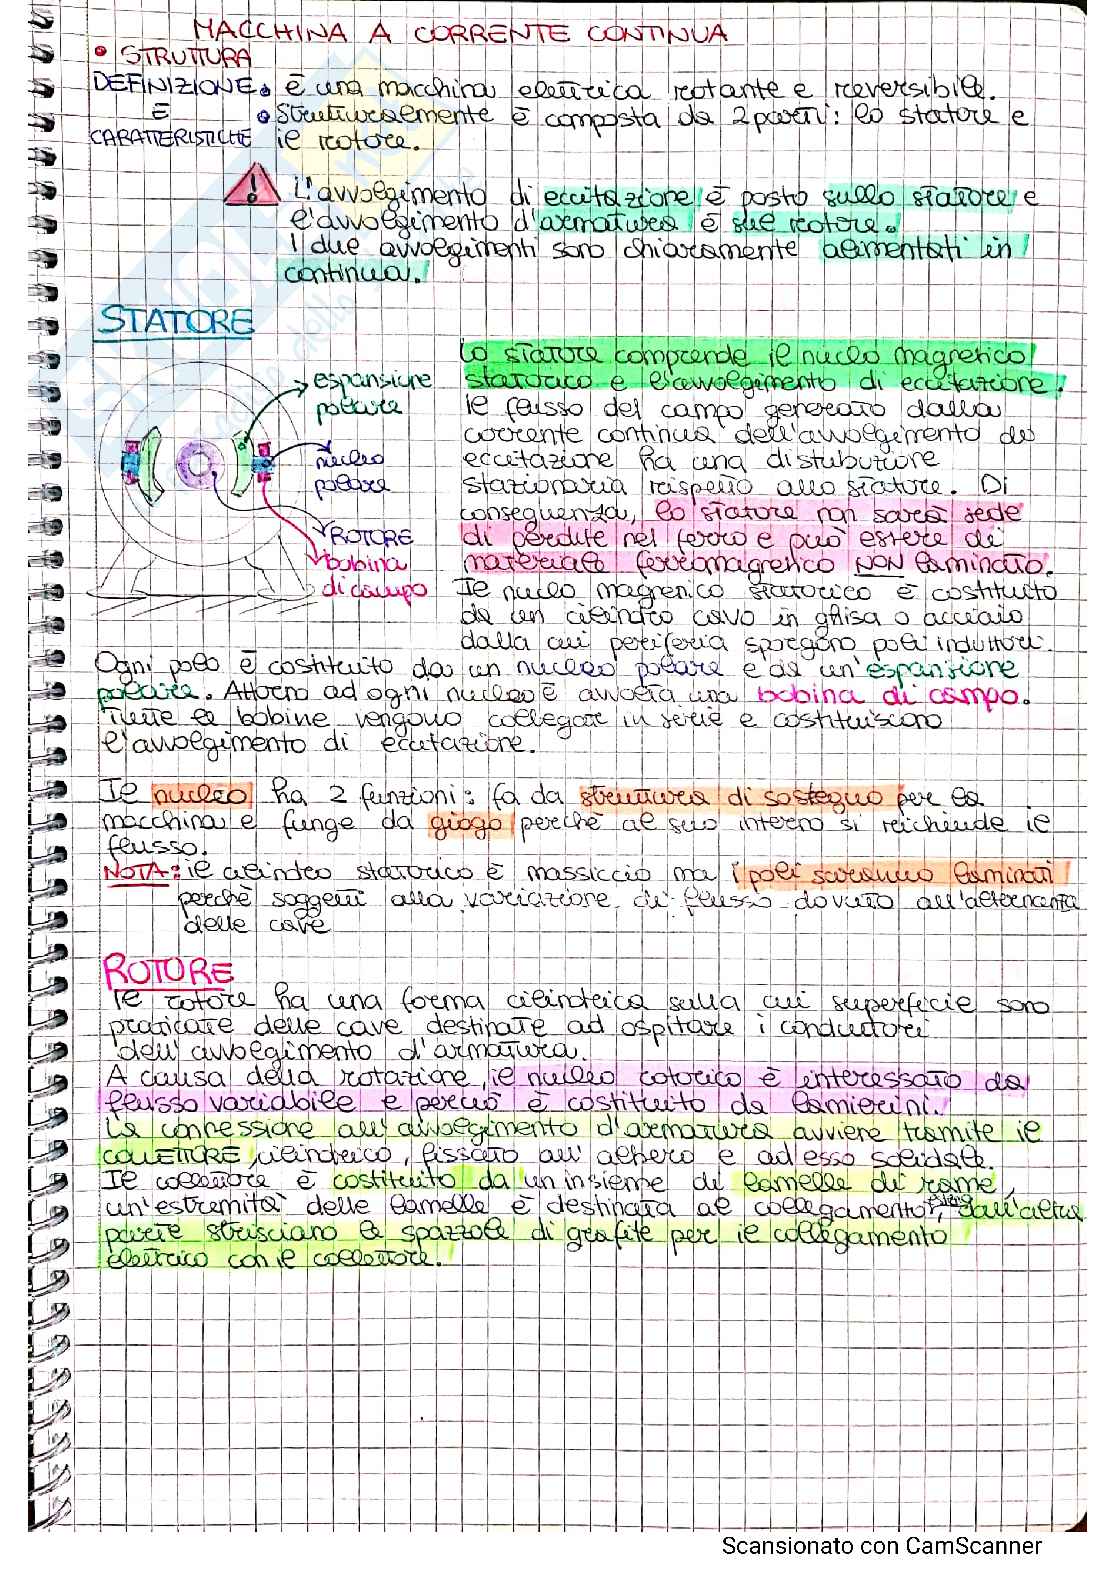 MACCHINA A CORRENTE CONTINUA
• STRUTTURA
DEFINIZIONE • è una macchina elettrica rotante e reversibile.
E • Strutturalmente è composta da 2 parti: lo statore e
CARATTERISTICHE il rotore.
L'avvolgimento di eccitazione è posto sullo statore e
l'avvolgimento d'armatura è sul rotore.
I due avvolgimenti sono chiaramente alimentati in
continua.
STATORE
Lo statore comprende il nucleo magnetico
statorico e l'avvolgimento di eccitazione.
Il flusso del campo generato dalla
corrente continua dell'avvolgimento di
eccitazione ha una distribuzione
stazionaria rispetto allo statore. Di
conseguenza, lo statore non sarà sede
di perdite nel ferro e può essere di
materiale ferromagnetico NON laminato.
Il nucleo magnetico statorico è costituito
da un cilindro cavo in ghisa o acciaio
dalla cui periferia sporgono poli induttori.
espansione
polare
nucleo
polare
ROTORE
bobina
di campo
Ogni polo è costituito da un nucleo polare e da un'espansione
polare. Attorno ad ogni nucleo è avvolta una bobina di campo.
Tutte le bobine vengono collegate in serie e costituiscono
l'avvolgimento di eccitazione.
Il nucleo ha 2 funzioni: fa da struttura di sostegno per la
macchina e funge da giogo perchè al suo interno si richiude il
flusso.
NOTA: il cilindro statorico è massiccio ma i poli saranno laminati
perchè soggetti alla variazione di flusso dovuto all'alternanza
delle cave
ROTORE
Il rotore ha una forma cilindrica sulla cui superficie sono
praticate delle cave destinate ad ospitare i conduttori
dell'avvolgimento d'armatura.
A causa della rotazione, il nucleo rotorico è interessato da
flusso variabile e perciò è costituito da lamierini.
La connessione all'avvolgimento d'armatura avviene tramite il
COLLETTORE, cilindrico, fissato all'albero e ad esso solidale.
Il collettore è costituito da un insieme di lamelle di rame,
un'estremità delle lamelle è destinata al collegamento, dall'altra
parte strisciano le spazzole di grafite per il collegamento
elettrico con il collettore.
Scansionato con CamScanner